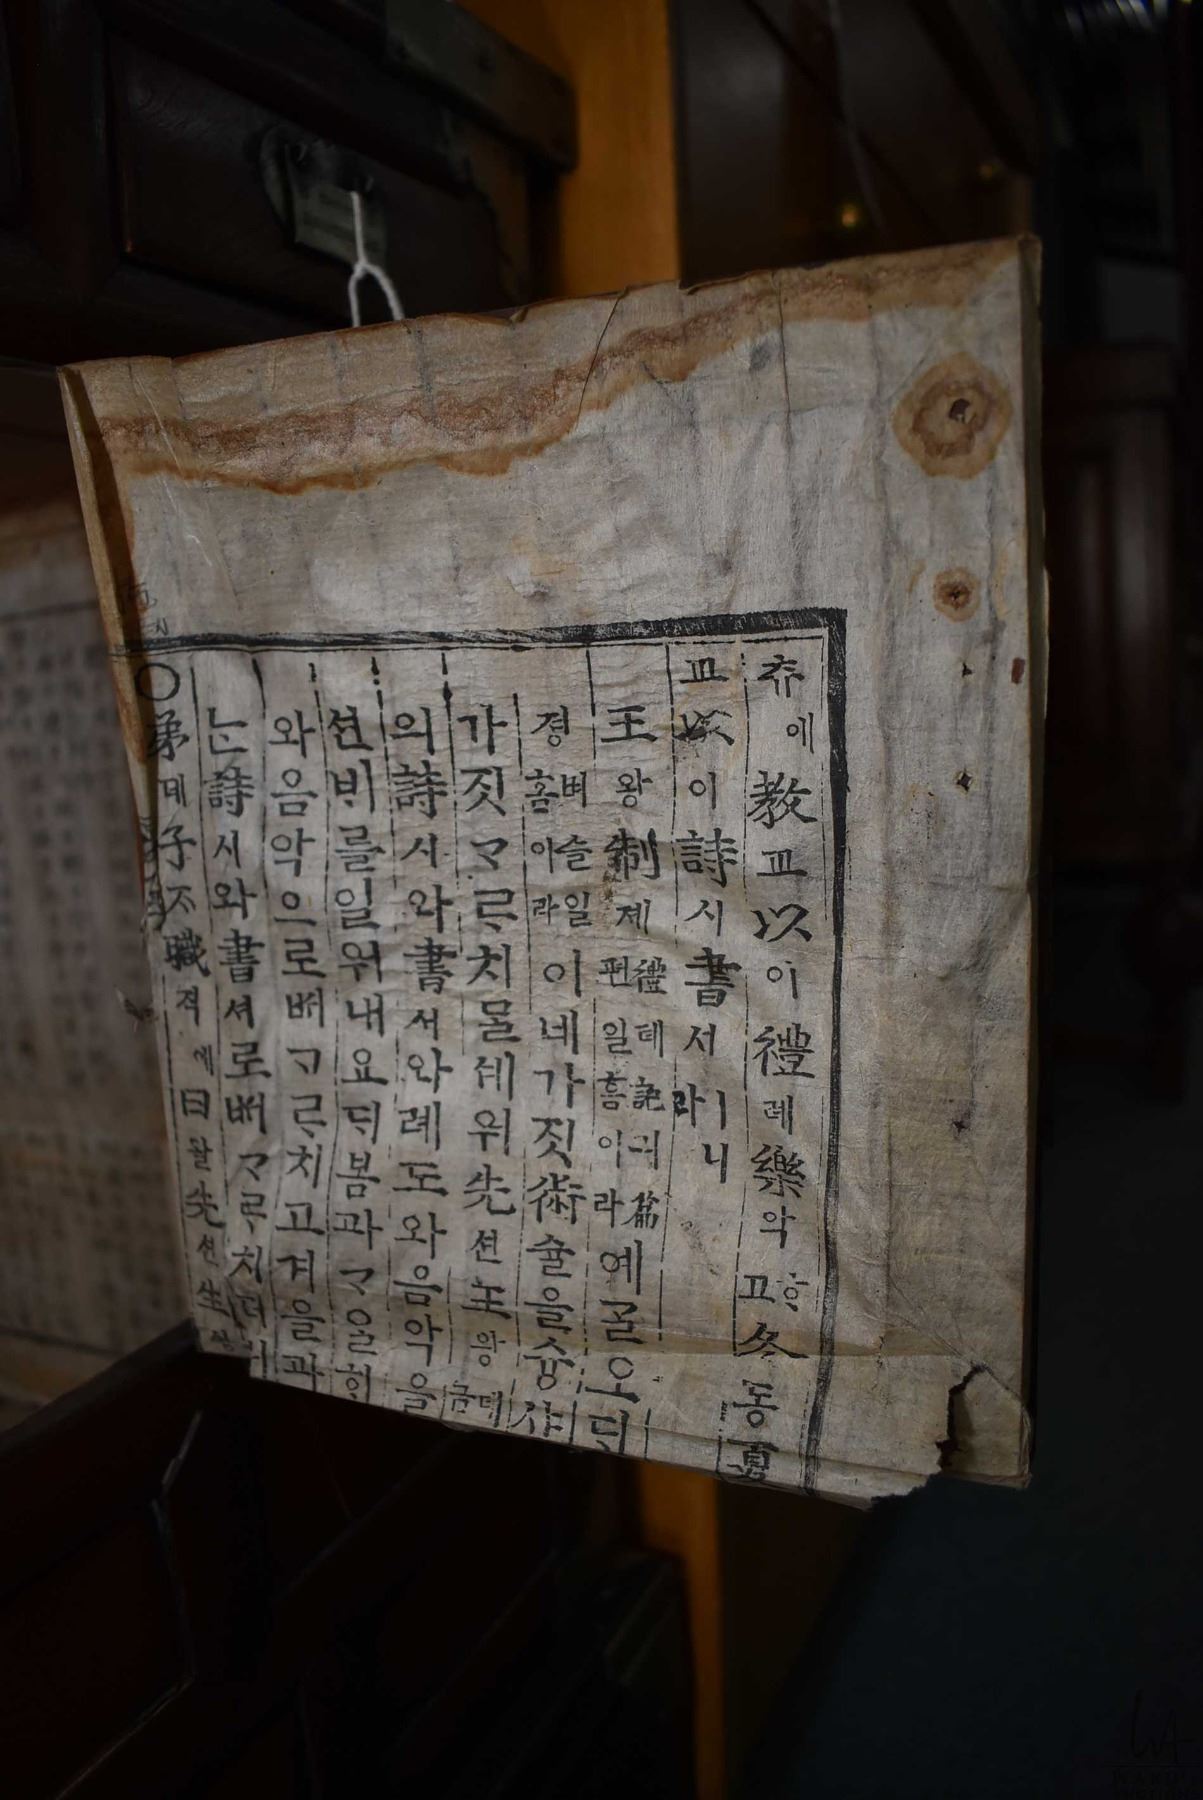 츄에敎교以이禮례樂악고冬동夏
교以이詩시書서ㅣ라니
王왕制졔禮례記긔篇편일흠이라예ᄀᆞᆯ오ᄃᆡ
졍벼슬일홈이라이네가짓術슐을슝샹
가짓ᄀᆞᄅᆞ치믈셰워先션王왕
의詩시와書셔와례도와음악을
션비를일워내요ᄃᆡ봄과ᄀᆞ을ᄒᆡ
와음악으로ᄡᅥᄀᆞᄅᆞ치고겨을과
는詩시와書셔로ᄡᅥᄀᆞᄅᆞ치더
○弟뎨子不職직에曰왈先션生